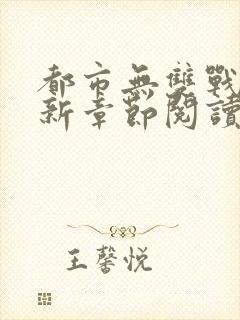 都市無雙戰
新章節閱讀
王馨悦